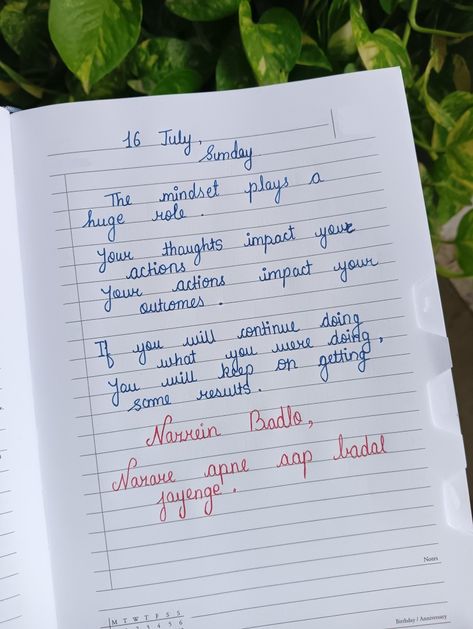 16 July,
Sunday
The mindset plays a
huge role.
Your thoughts impact your
actions
Your actions impact your
outcomes.
If you will continue doing
what you were doing,
You will keep on getting
same results.
Nazrein Badlo,
Nazare apne aap badal
jayenge.
Notes
M T W T F S S
Birthday / Anniversary